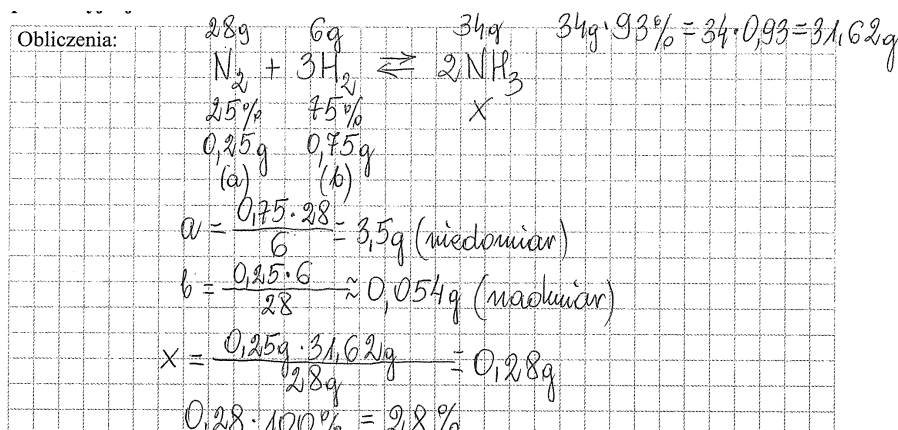 Obliczenia:
28g 6g 34g 34g·93% = 34·0,93 = 31,62g
N₂ + 3H₂ ⇄ 2NH₃
25% 75% x
0,25g 0,75g
(a) (b)
a = 0,75·28 / 6 = 3,5g (niedomiar)
b = 0,25·6 / 28 ≈ 0,054g (nadmiar)
x = 0,25g·31,62g / 28g = 0,28g
0,28·100% = 28%